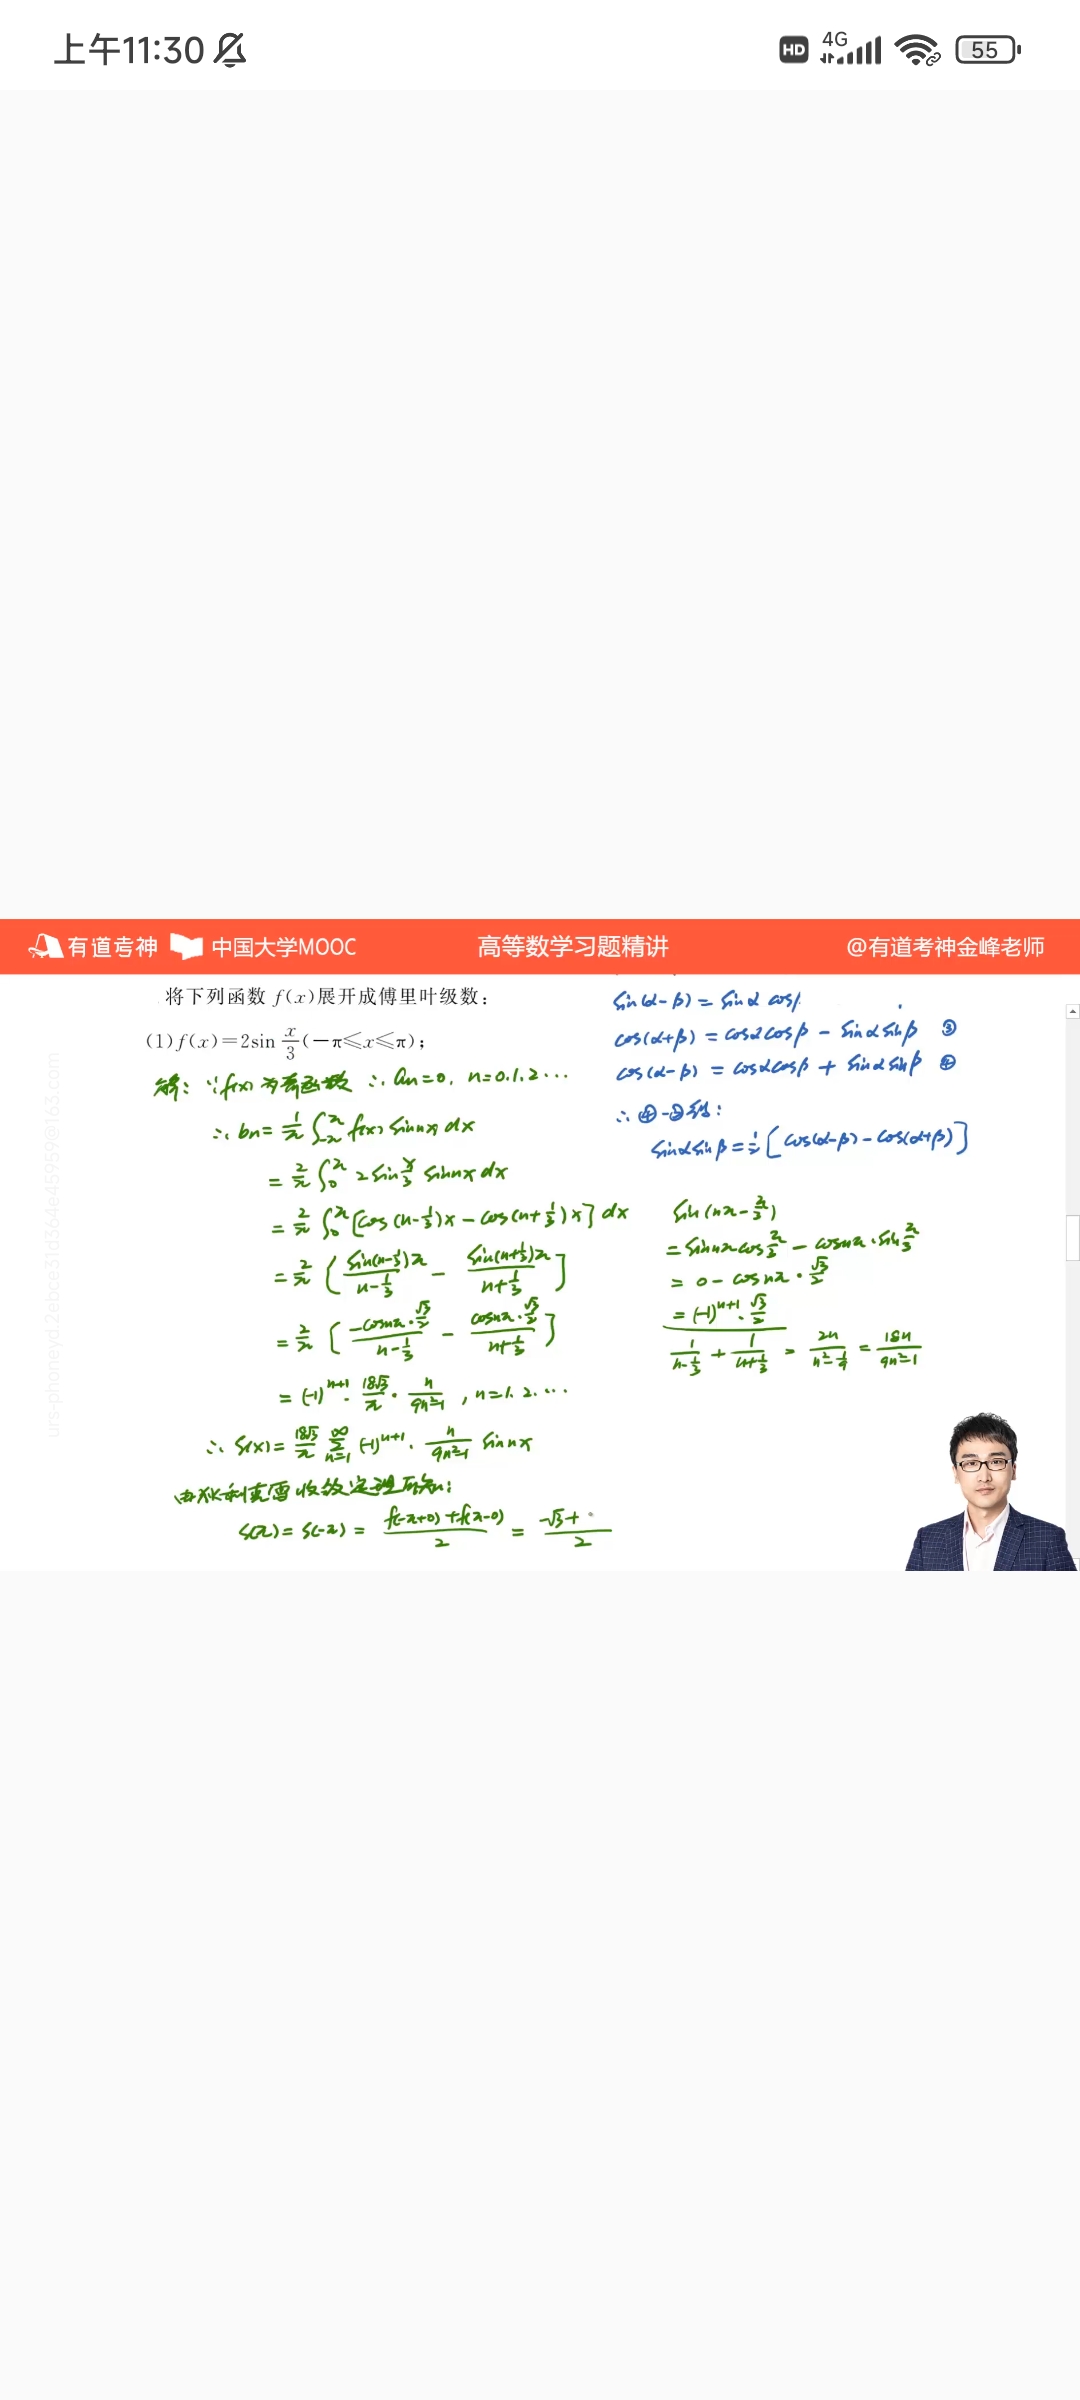 上午11:30
HD 4G 55
有道考神 中国大学MOOC 高等数学习题精讲 @有道考神金峰老师
将下列函数 f(x)展开成傅里叶级数:
(1) f(x)=2sin x/3 (-π≤x≤π);
解: ∵f(x)为奇函数 ∴ an=0, n=0.1.2…
∴ bn= 1/π ∫_{-π}^{π} f(x) sinnx dx
= 2/π ∫_0^π 2 sin x/3 sinnx dx
= 2/π ∫_0^π [cos(n-1/3)x - cos(n+1/3)x] dx
= 2/π [ sin(n-1/3)π / (n-1/3) - sin(n+1/3)π / (n+1/3) ]
= 2/π [ -cosnπ·√3/2 / (n-1/3) - cosnπ·√3/2 / (n+1/3) ]
= (-1)^{n+1} · 18√3/π · n/(9n²-1) , n=1.2.…
∴ S(x)= 18√3/π ∑_{n=1}^{∞} (-1)^{n+1} · n/(9n²-1) sinnx
由狄利克雷收敛定理可知:
S(π)= S(-π) = (f(-π+0)+f(π-0))/2 = (-√3+)/2
sin(α-β) = sinα cosβ
cos(α+β) = cosαcosβ - sinαsinβ ③
cos(α-β) = cosαcosβ + sinαsinβ ④
∴ ④-③得:
sinαsinβ = 1/2 [cos(α-β) - cos(α+β)]
sin(nπ-π/3)
= sinnπcos π/3 - cosnπ·sin π/3
= 0 - cosnπ · √3/2
= (-1)^{n+1} · √3/2
1/(n-1/3) + 1/(n+1/3) = 2n/(n²-1/9) = 18n/(9n²-1)
urs-phoneyd.2ebce31d364e45959@163.com